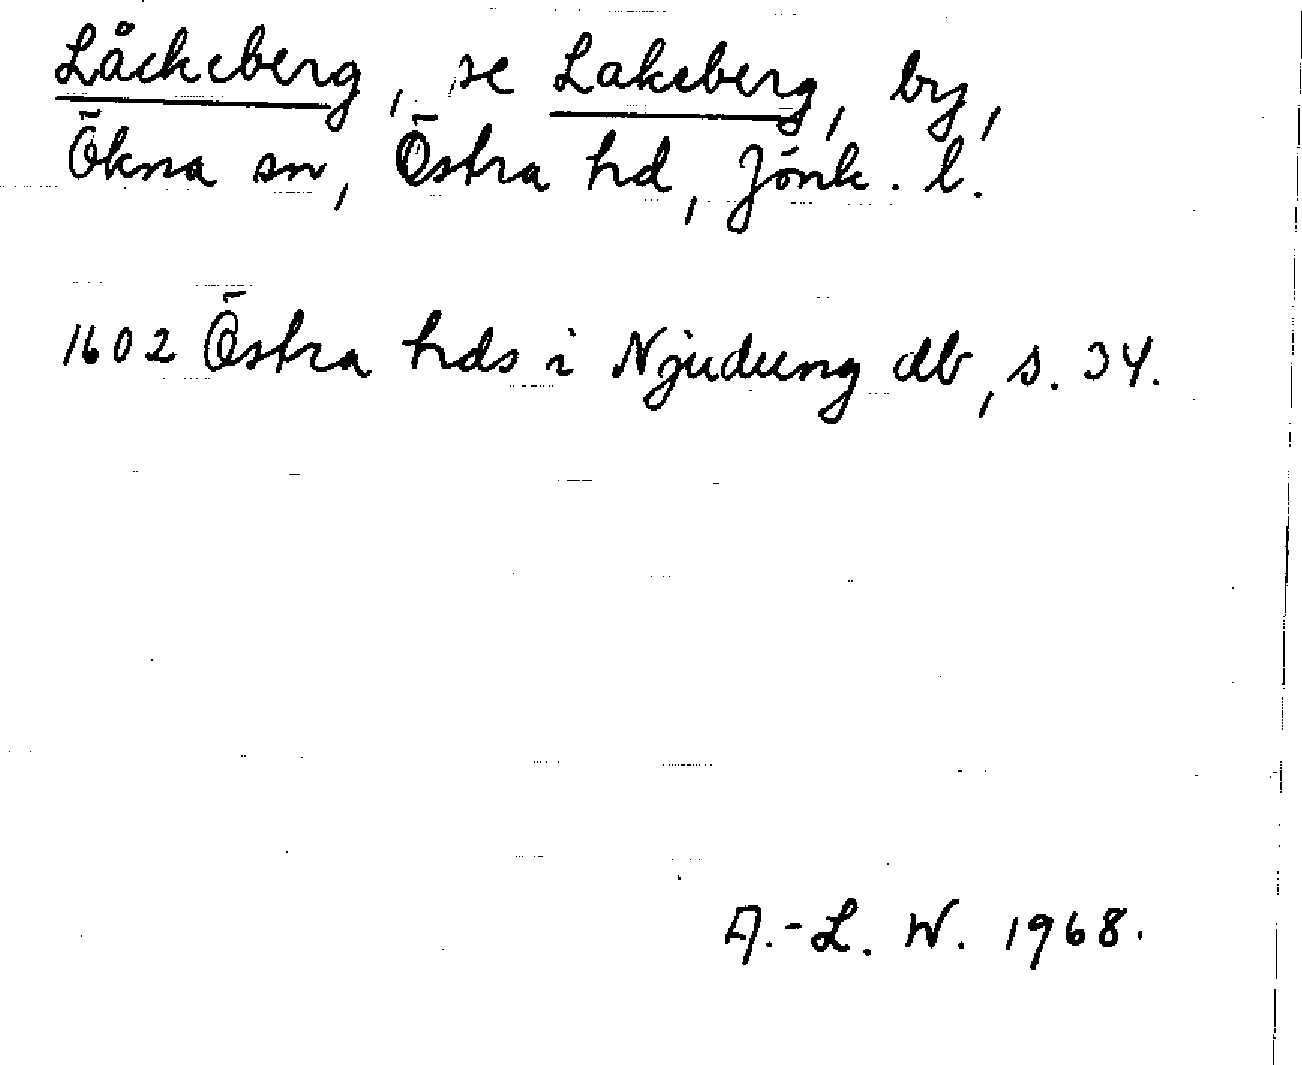 Låckeberg, se Lakeberg, by,
Ökna sn, Östra hd, Jönk. l.
1602 Östra hds i Njudung db, s. 34.
A.-L. W. 1968.